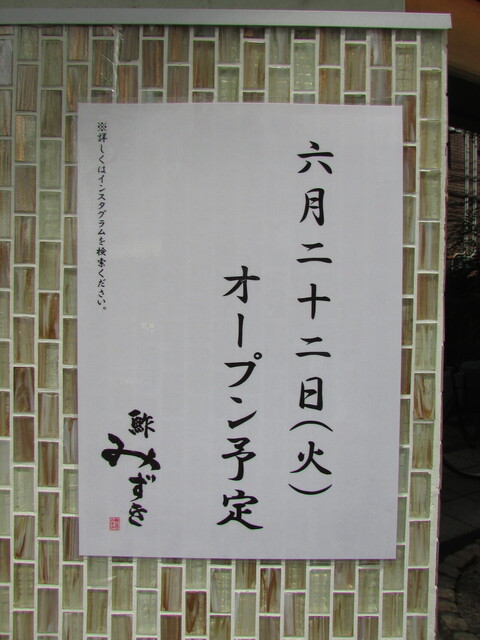 六月二十二日(火)
オープン予定
鮓
みずき
※詳しくはインスタグラムを検索ください。